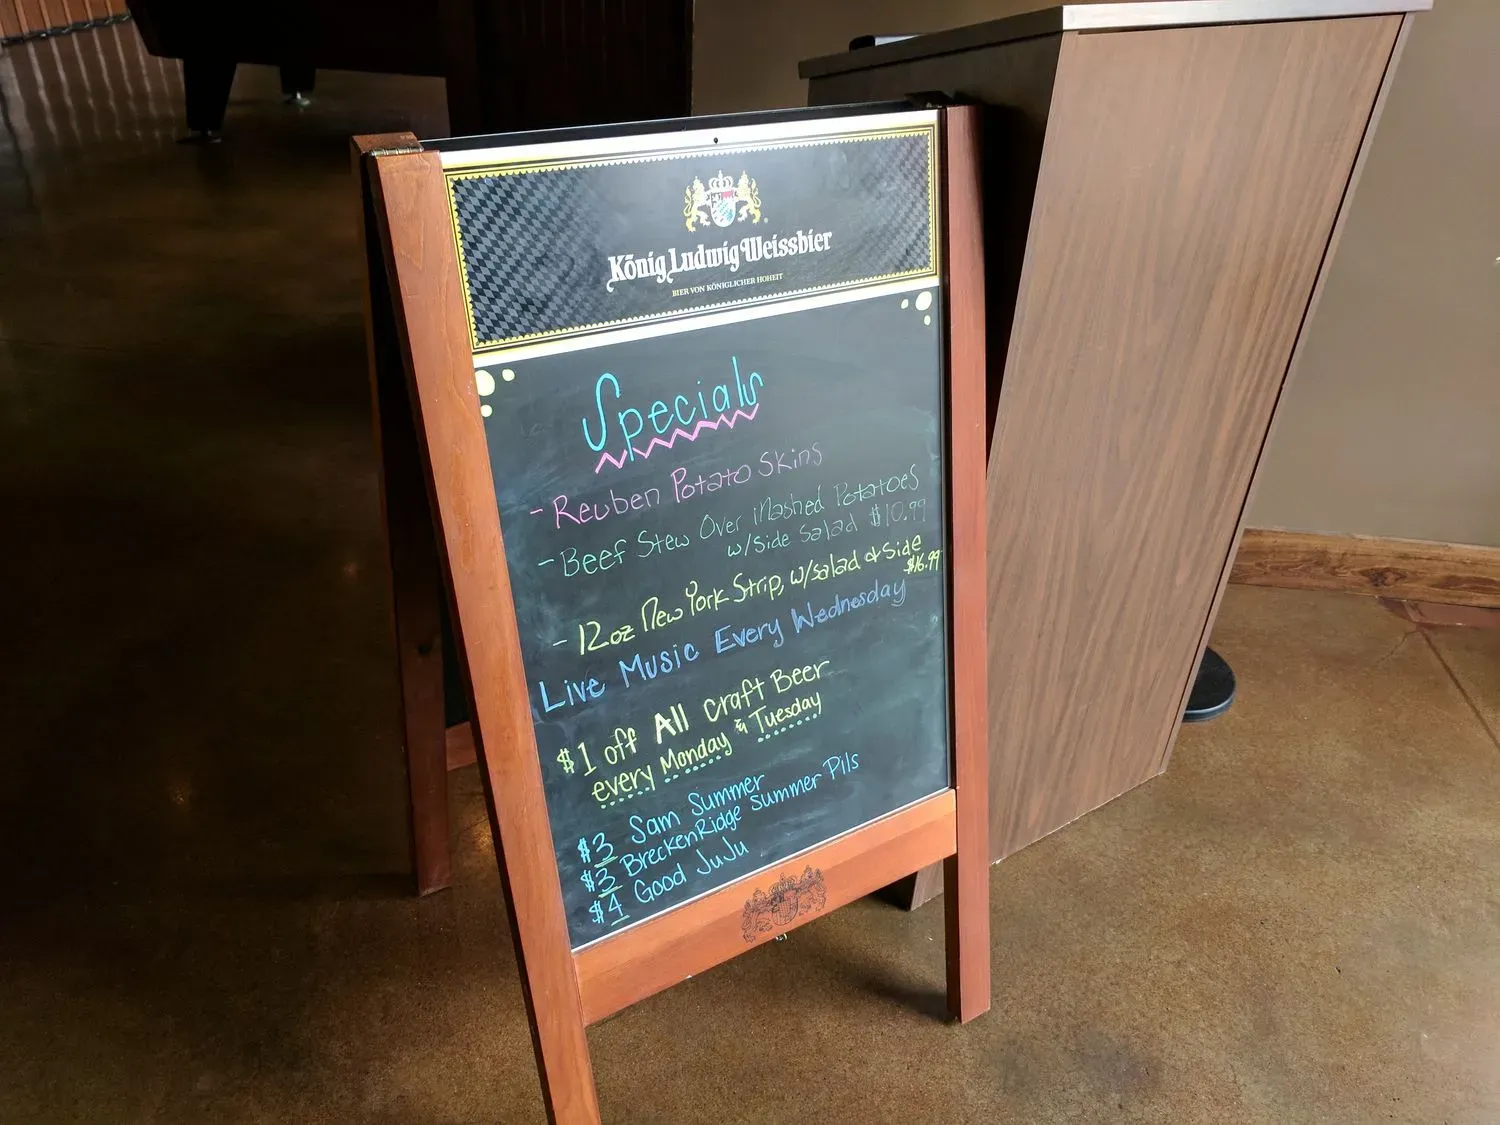 König Ludwig Weissbier
BIER VON KÖNIGLICHER HOHEIT
Specials
- Reuben Potato Skins
- Beef Stew Over Mashed Potatoes
w/side salad $10.99
- 12oz New York Strip, w/salad & side
$16.99
Live Music Every Wednesday
$1 off All craft Beer
every Monday & Tuesday
$3 Sam Summer
$3 BreckenRidge Summer Pils
$4 Good JuJu